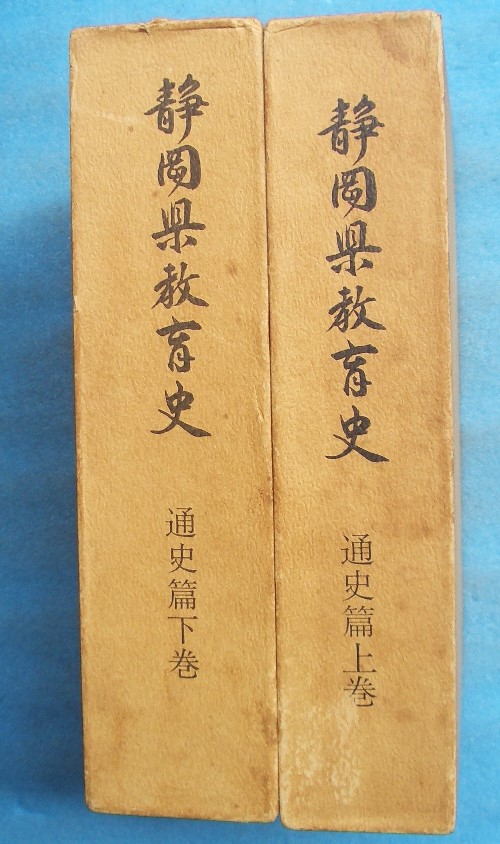 静岡県教育史
通史篇上巻
静岡県教育史
通史篇下巻